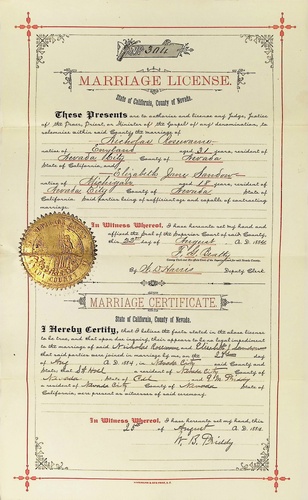 304
MARRIAGE LICENSE.
State of California, County of Nevada.
These Presents are to authorize and license any Judge, Justice
of the Peace, Priest, or Minister of the Gospel of any denomination, to
solemnize within said County the marriage of
Nicholas
native of England aged 21 years, resident of
Nevada City County of Nevada
State of California, and
Elizabeth Jane
native of Michigan aged 18 years, resident of
Nevada City County of Nevada State of
California. Said parties being of sufficient age and capable of contracting
marriage.
In Witness Whereof, I have hereunto set my hand and
affixed the Seal of the Superior Court of said County,
this 23rd day of August A. D. 1884
By Harris Deputy Clerk.
MARRIAGE CERTIFICATE.
State of California, County of Nevada.
I Hereby Certify, that I believe the facts stated in the above license
to be true, and that upon due inquiry, there appears to be no legal impediment
to the marriage of said Nicholas and Elizabeth J
that said parties were joined in marriage by me, on the 24th day
of Aug A. D. 1884, in Nevada City said County and
State; that a resident of Nevada City County of
Nevada State of Cal and Priddy
a resident of Nevada City County of Nevada State of
California, were present as witnesses of said ceremony.
In Witness Whereof, I have hereunto set my hand, this
25th of August A. D. 1884.
W. B. Priddy